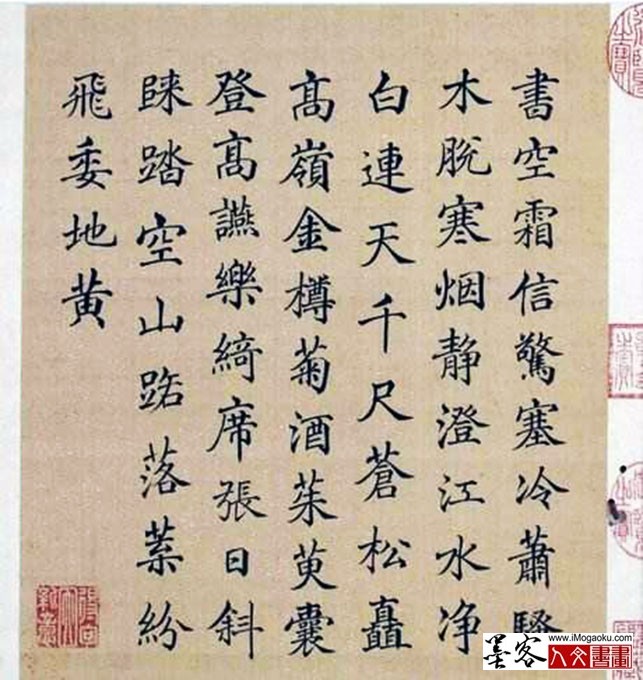 書空霜信驚塞冷蕭騷
木脫寒烟静澄江水净
白連天千尺蒼松矗
高嶺金樽菊酒茱萸囊
登高讌樂綺席張日斜
踏空山路落葉紛
飛委地黄
墨客 www.iMogaoku.com
人文書畫